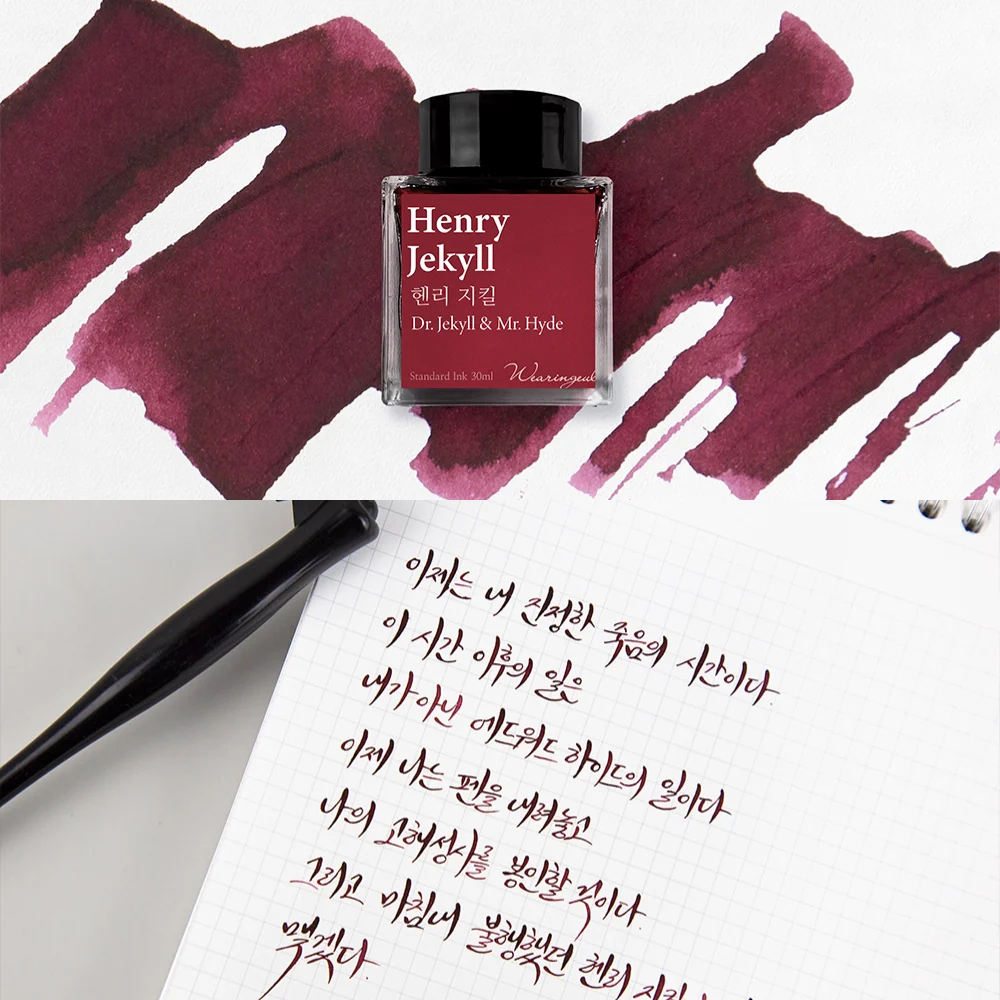 Henry
Jekyll
헨리 지킬
Dr. Jekyll & Mr. Hyde
Standard Ink 30ml Wearingeul
이제는 내 진정한 죽음의 시간이다.
이 시간 이후의 일은
내가 아닌 에드워드 하이드의 일이다
이제 나는 펜을 내려놓고
나의 고해성사를 봉인할 것이다.
그리고 마침내 불행했던 헨리 지킬
맺겠다.